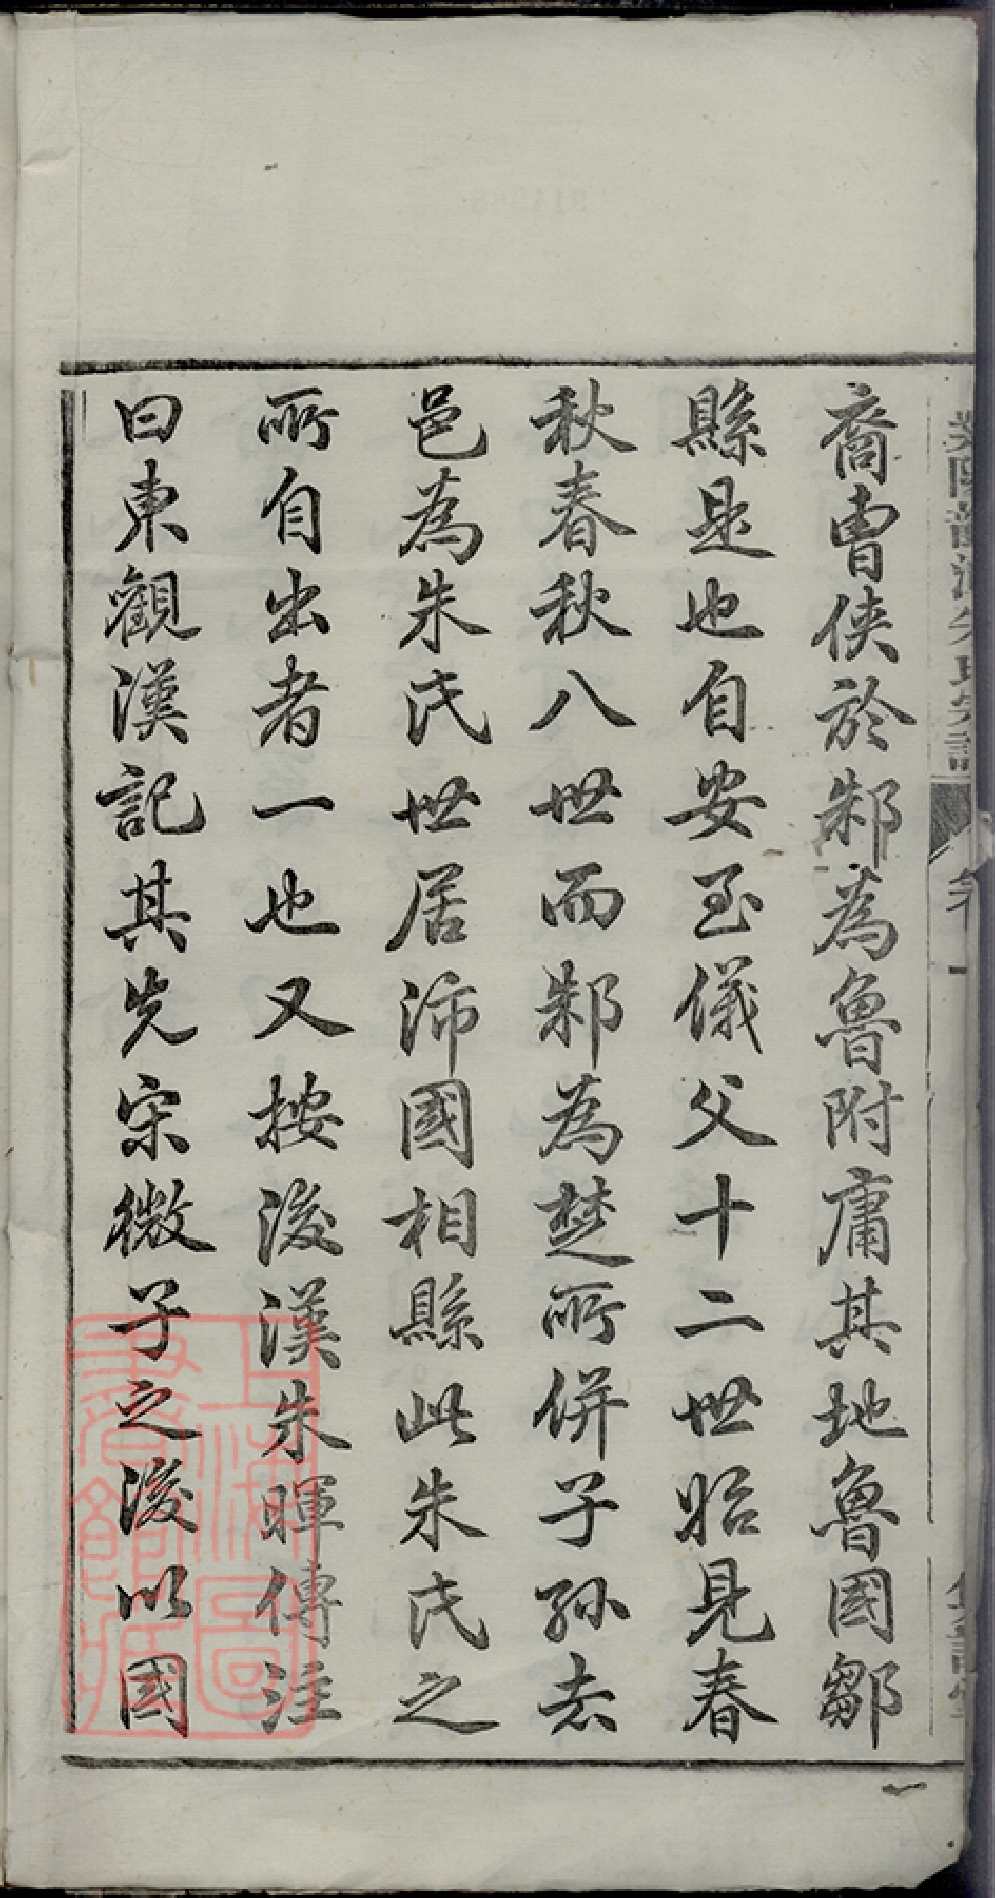 裔曹侠於邾為魯附庸其地魯國鄒
縣是也自安至儀父十二世始見春
秋春秋八世而邾為楚所併子孫去
邑為朱氏世居沛國相縣此朱氏之
所自出者一也又按後漢朱暉傳注
曰東觀漢記其先宋微子之後以國
上海圖
書館藏